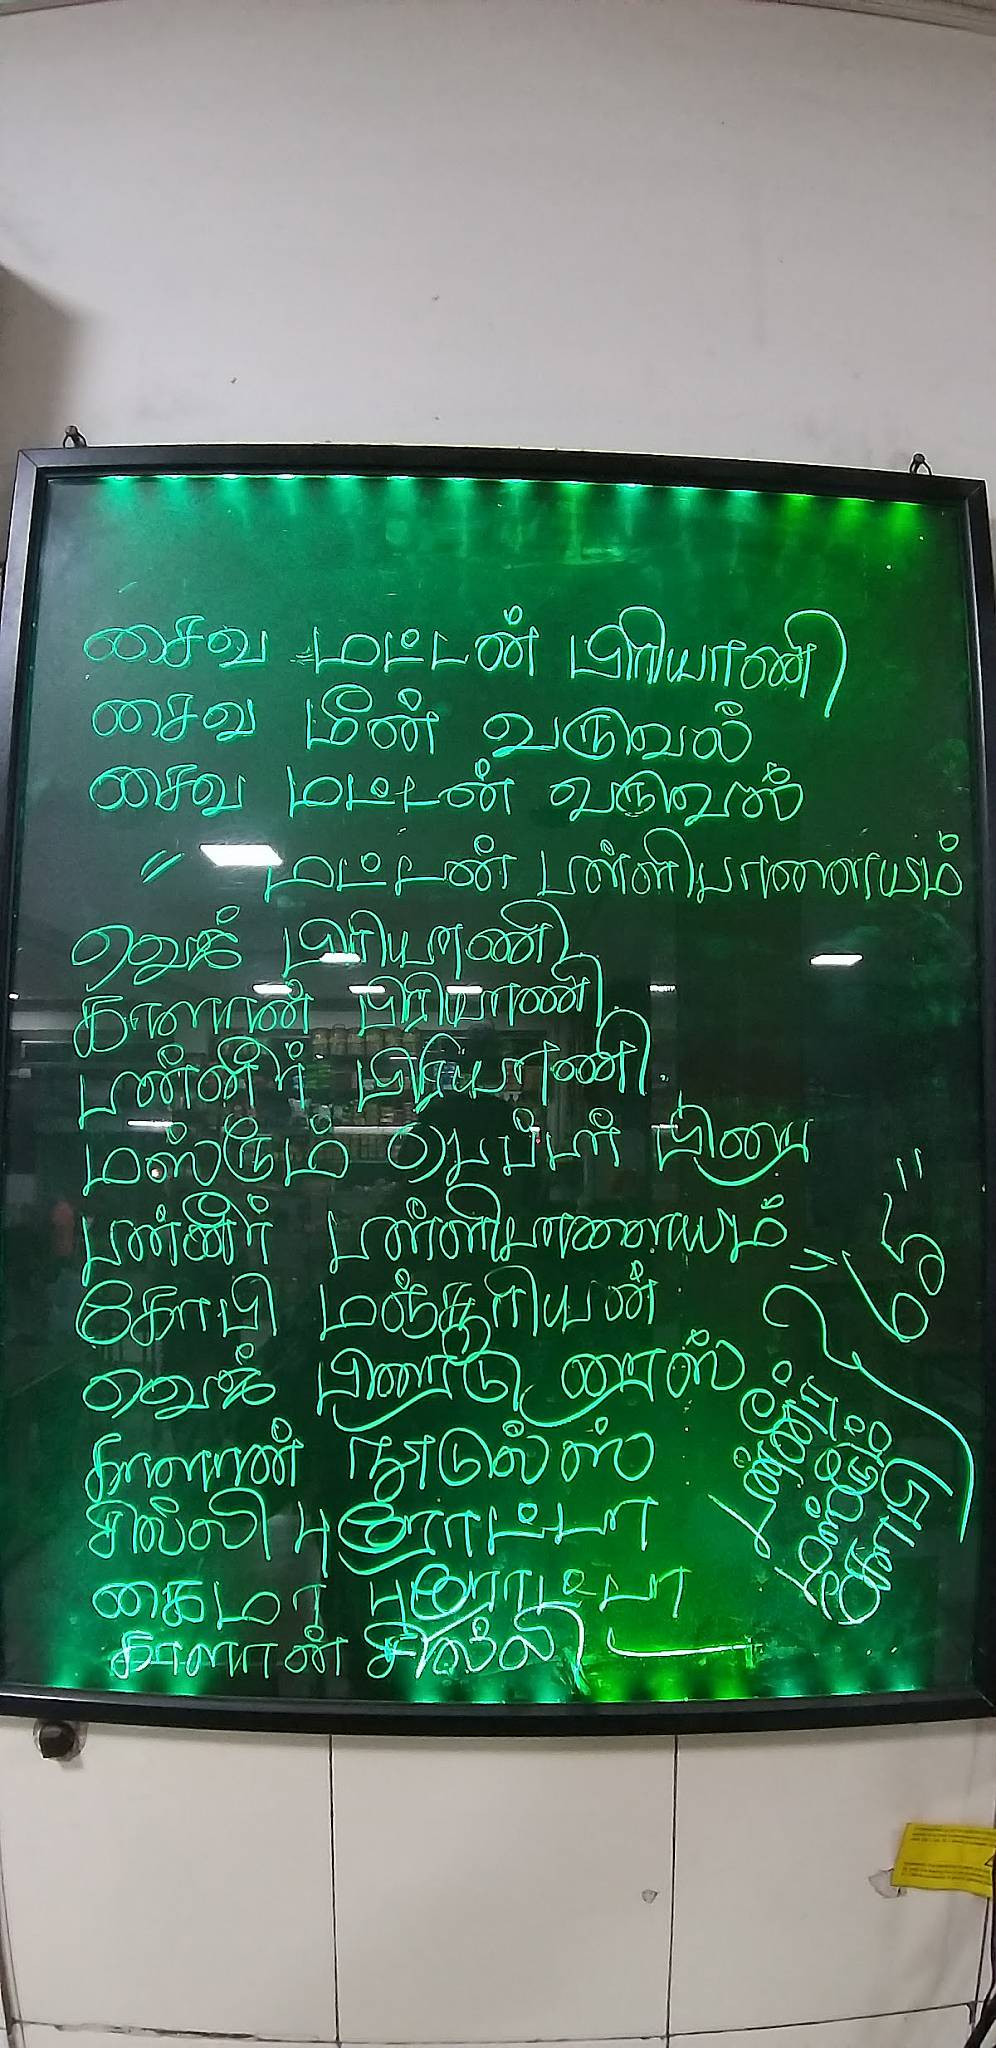 சைவ மட்டன் பிரியாணி
சைவ மீன் வருவல்
சைவ மட்டன் வருவல்
" மட்டன் பள்ளிபாளையம்
வெஜ் பிரியாணி
காளான் பிரியாணி
பன்னீர் பிரியாணி
மஸ்ரூம் பெப்பர் பிரை
பன்னீர் பள்ளிபாளையம்
கோபி மஞ்சூரியன்
வெஜ் பிரைடு ரைஸ்
காளான் நூடுல்ஸ்
சில்லி புரோட்டா
கைமா புரோட்டா
காளான் சில்லி
பன்னீர்
மஸ்ரூம்
கோபி
65"